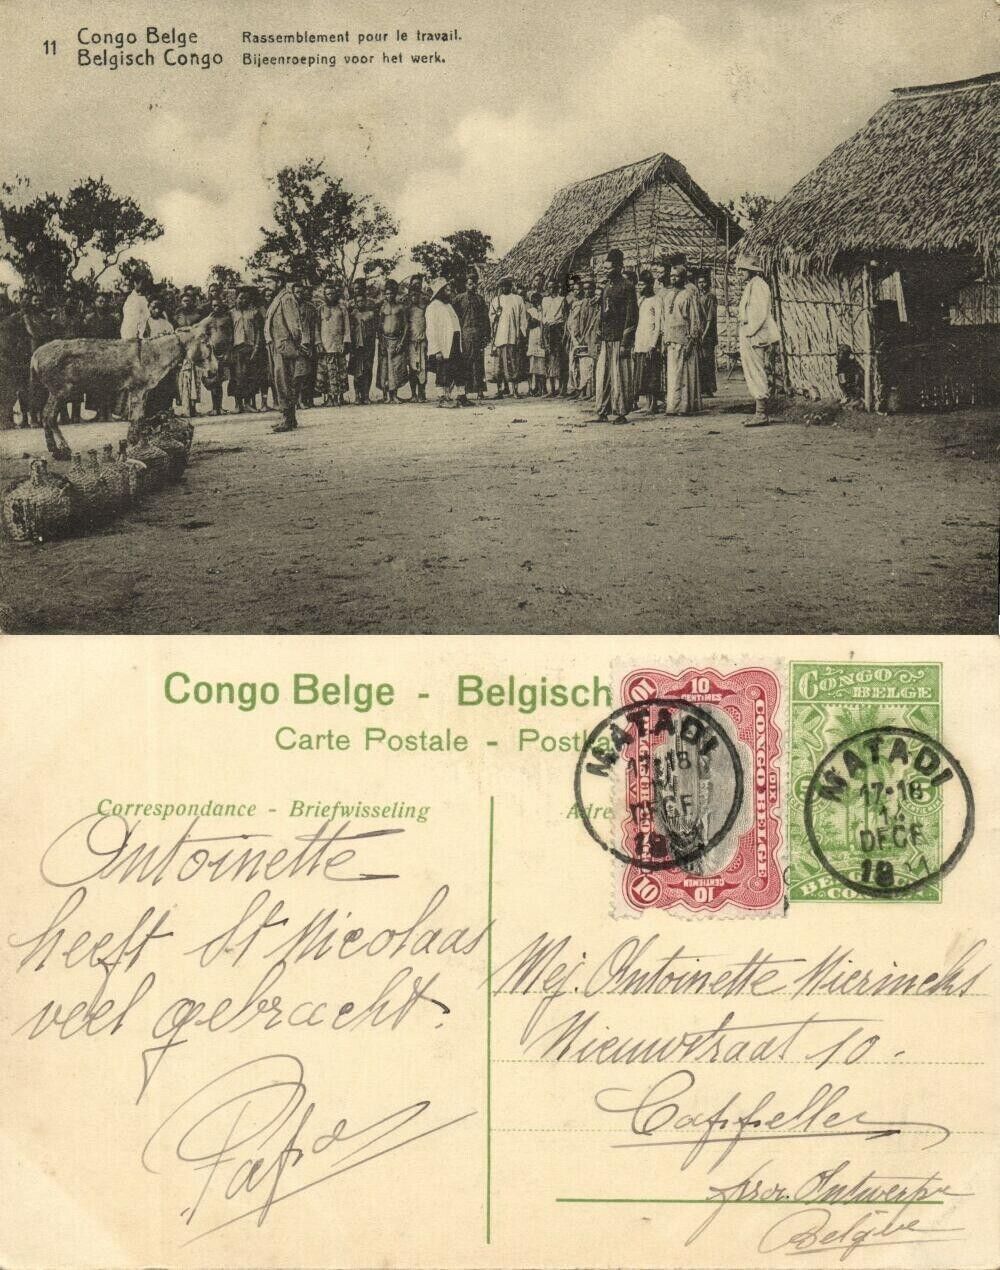 11 Congo Belge Rassemblement pour le travail.
Belgisch Congo Bijeenroeping voor het werk.
Congo Belge - Belgisch
Carte Postale - Postka
Correspondance - Briefwisseling
Adre
10
CENTIMES
10
CONGO BELGE
DIX
10
CENTIEMEN
10
MATADI
17-18
DECE
19
CONGO
BELGE
5
BELGISCH
CONGO
MATADI
17-18
1.
DECE
19
Antoinette
heeft St Nicolaas
veel gebracht.
Papa
Mej. Antoinette Nierincks
Nieuwstraat 10.
Cappellen
près Antwerpen
Belgique